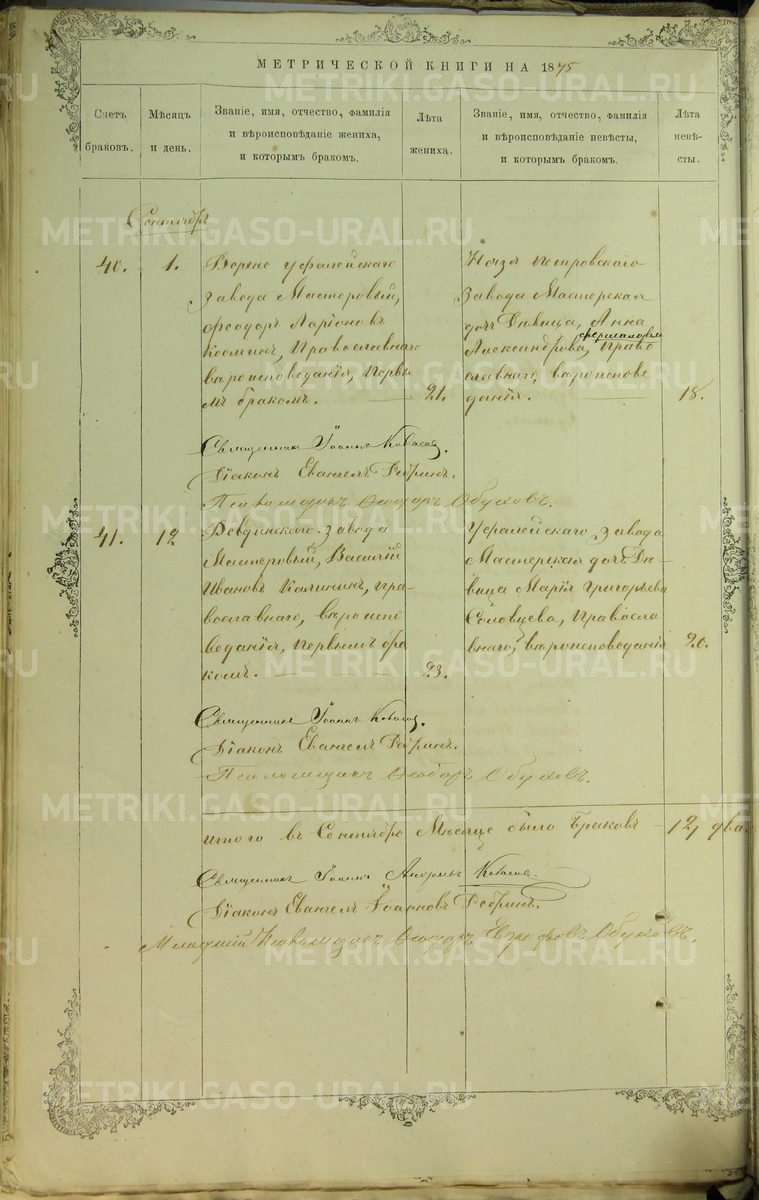 МЕТРИЧЕСКОЙ КНИГИ НА 1875
Счетъ браковъ.
Мѣсяцъ и день.
Званіе, имя, отчество, фамилія
и вѣроисповѣданіе жениха,
и которымъ бракомъ.
Лѣта жениха.
Званіе, имя, отчество, фамилія
и вѣроисповѣданіе невѣсты,
и которымъ бракомъ.
Лѣта невѣсты.
Сентябрь
40.
1.
Верхне Уфалейскаго
завода Мастеровый,
Ѳеодоръ Ларіоновъ
Православнаго
вѣроисповеданія, Первы
мъ бракомъ.
21.
Петровскаго
завода Мастерская
дочь Дѣвица, Анна
Александрова, Право
славнаго, вѣроисповѣ
данія.
18.
Священникъ Іоаннъ
Діаконъ Евангелъ Добринъ.
Псаломщикъ Ѳеодоръ Обуховъ.
41.
12
завода
Мастеровый, Василій
Ивановъ Калининъ, пра-
вославнаго, вѣроиспо
веданія, первымъ бра
комъ.
23.
Уфалейскаго завода
Мастерская дочь Дѣ-
вица Марія Григорьева
Соловцева, Правосла
внаго, вѣроисповеданія
20.
Священникъ Іоаннъ
Діаконъ Евангелъ Добринъ.
Псаломщикъ Ѳеодоръ Обуховъ.
итого въ Сентябрѣ Мѣсяце было браковъ – 2, два.
Священникъ Іоаннъ
Діаконъ Евангелъ Іоанновъ Добринъ.
Ѳеодоръ Обуховъ.
METRIKI.GASO-URAL.RU